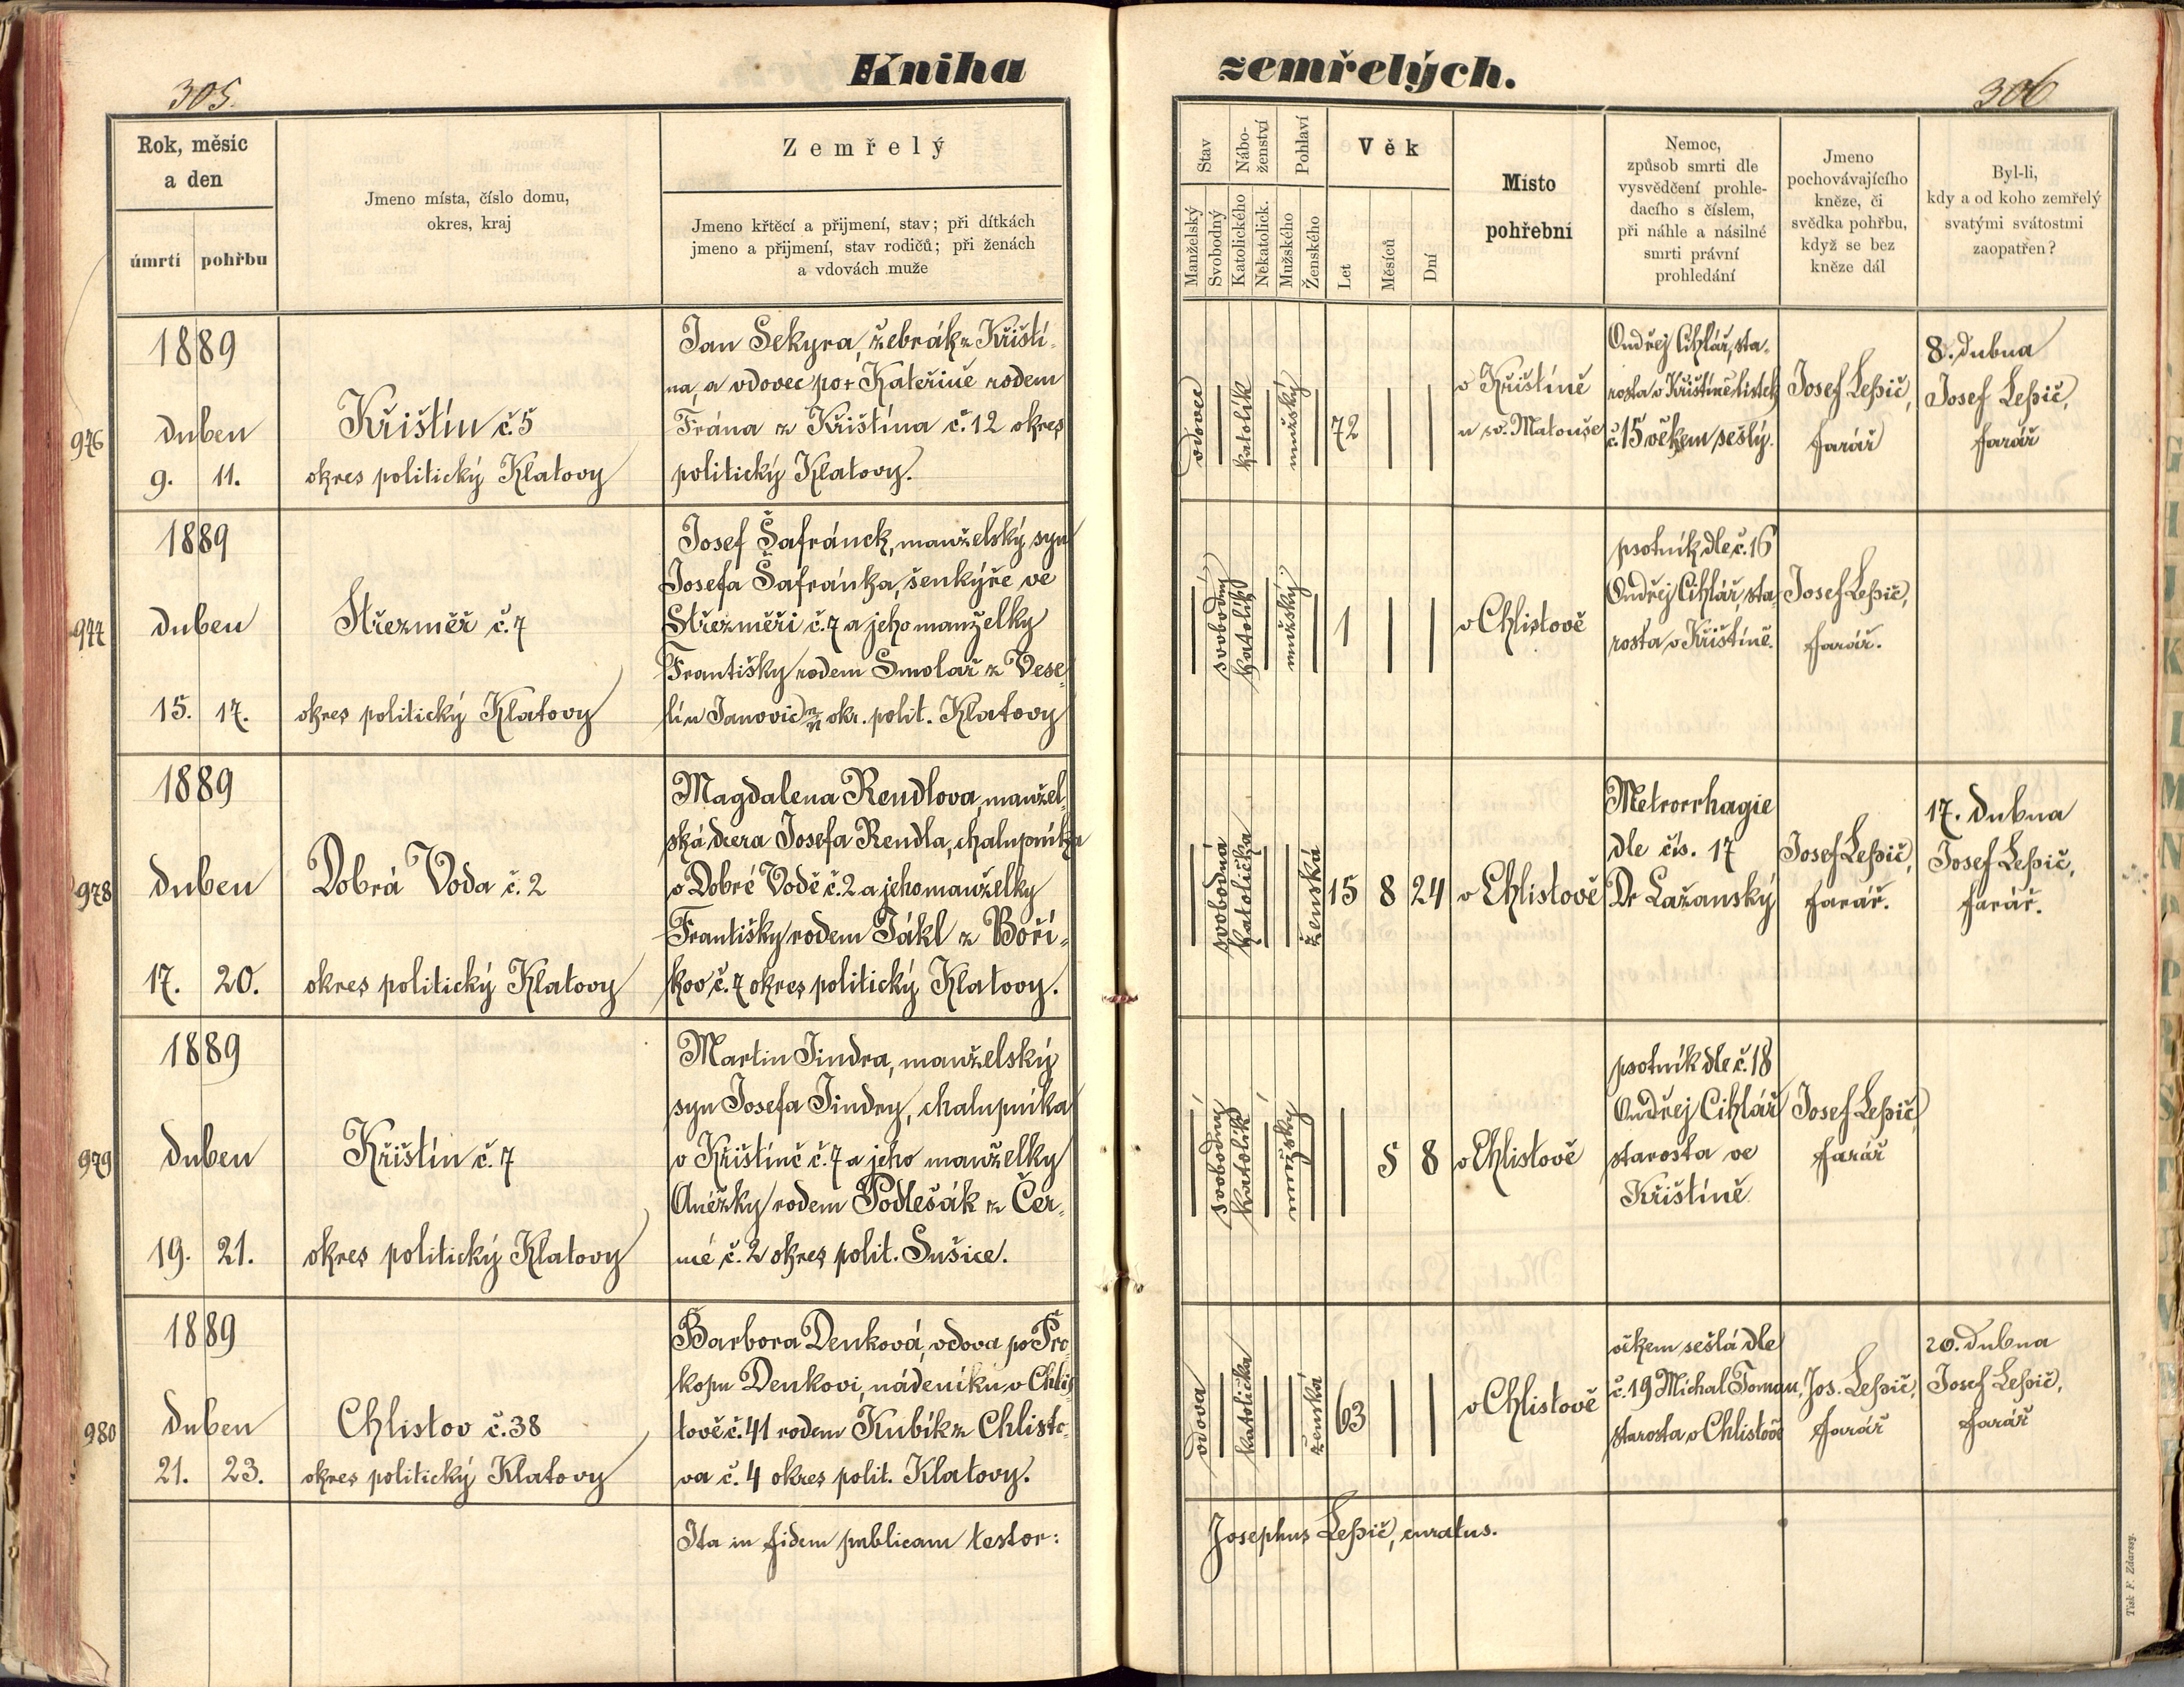 305.
Kniha
zemřelých.
306
Rok, měsíc
a den
úmrtí
pohřbu
Jmeno místa, číslo domu,
okres, kraj
Zemřelý
Jmeno křtěcí a přijmení, stav; při dítkách
jmeno a přijmení, stav rodičů; při ženách
a vdovách muže
Stav
Manželský
Svobodný
Nábo-
ženství
Katolického
Nekatolick.
Pohlaví
Mužského
Ženského
Věk
Let
Měsíců
Dní
Místo
pohřební
Nemoc,
způsob smrti dle
vysvědčení prohle-
dacího s číslem,
při náhle a násilné
smrti právní
prohledání
Jmeno
pochovávajícího
kněze, či
svědka pohřbu,
když se bez
kněze dál
Byl-li,
kdy a od koho zemřelý
svatými svátostmi
zaopatřen?
976
1889
duben
9. 11.
Křištín č. 5
okres politický Klatovy
Jan Sekyra, žebrák z Křiští-
na, a vdovec po + Kateřině rodem
Frána z Křištína č. 12 okres
politický Klatovy.
vdovec
katolík
mužský
72
v Křištíně
u sv. Matouše
Ondřej Cihlář, sta-
rosta v Křištíně listek
č. 15 věkem sešlý.
Josef Lepič,
farář
8. dubna
Josef Lepič,
farář
977
1889
duben
15. 17.
Střezměř č. 7
okres politický Klatovy
Josef Šafránek, manželský syn
Josefa Šafránka, šenkýře ve
Střezměři č. 7 a jeho manželky
Františky rodem Smolař z Vese-
lí u Janovic okr. polit. Klatovy
svobodný
katolík
mužský
1
v Chlistově
psotník dle č. 16
Ondřej Cihlář, sta-
rosta v Křištíně.
Josef Lepič,
farář.
978
1889
duben
17. 20.
Dobrá Voda č. 2
okres politický Klatovy
Magdalena Rendlova, manžel-
ská dcera Josefa Rendla, chalupníka
v Dobré Vodě č. 2 a jeho manželky
Františky rodem Jákl z Boří-
kov č. 7 okres politický Klatovy.
svobodná
katolička
ženská
15 8 24
v Chlistově
Metrorrhagie
dle čís. 17
Dr Lažanský
Josef Lepič,
farář.
17. dubna
Josef Lepič,
farář.
979
1889
duben
19. 21.
Křištín č. 7
okres politický Klatovy
Martin Jindra, manželský
syn Josefa Jindry, chalupníka
v Křištíně č. 7 a jeho manželky
Anéžky rodem Podlešák z Čer-
né č. 2 okres polit. Sušice.
svobodný
katolík
mužský
5 8
v Chlistově
psotník dle č. 18
Ondřej Cihlář
starosta ve
Křištíně
Josef Lepič,
farář
980
1889
duben
21. 23.
Chlistov č. 38
okres politický Klatovy
Barbora Denková, vdova po Pro-
kopu Denkovi, nádeníku v Chlis-
tově č. 41 rodem Kubík z Chlisto-
va č. 4 okres polit. Klatovy.
vdova
katolička
ženská
63
v Chlistově
věkem sešlá dle
č. 19 Michal Toman,
starosta v Chlistově
Jos. Lepič,
farář
20. dubna
Josef Lepič,
farář
Ita in fidem publicam testor:
Josephus Lepič, curatus.
Tisk F. Zdarssy.